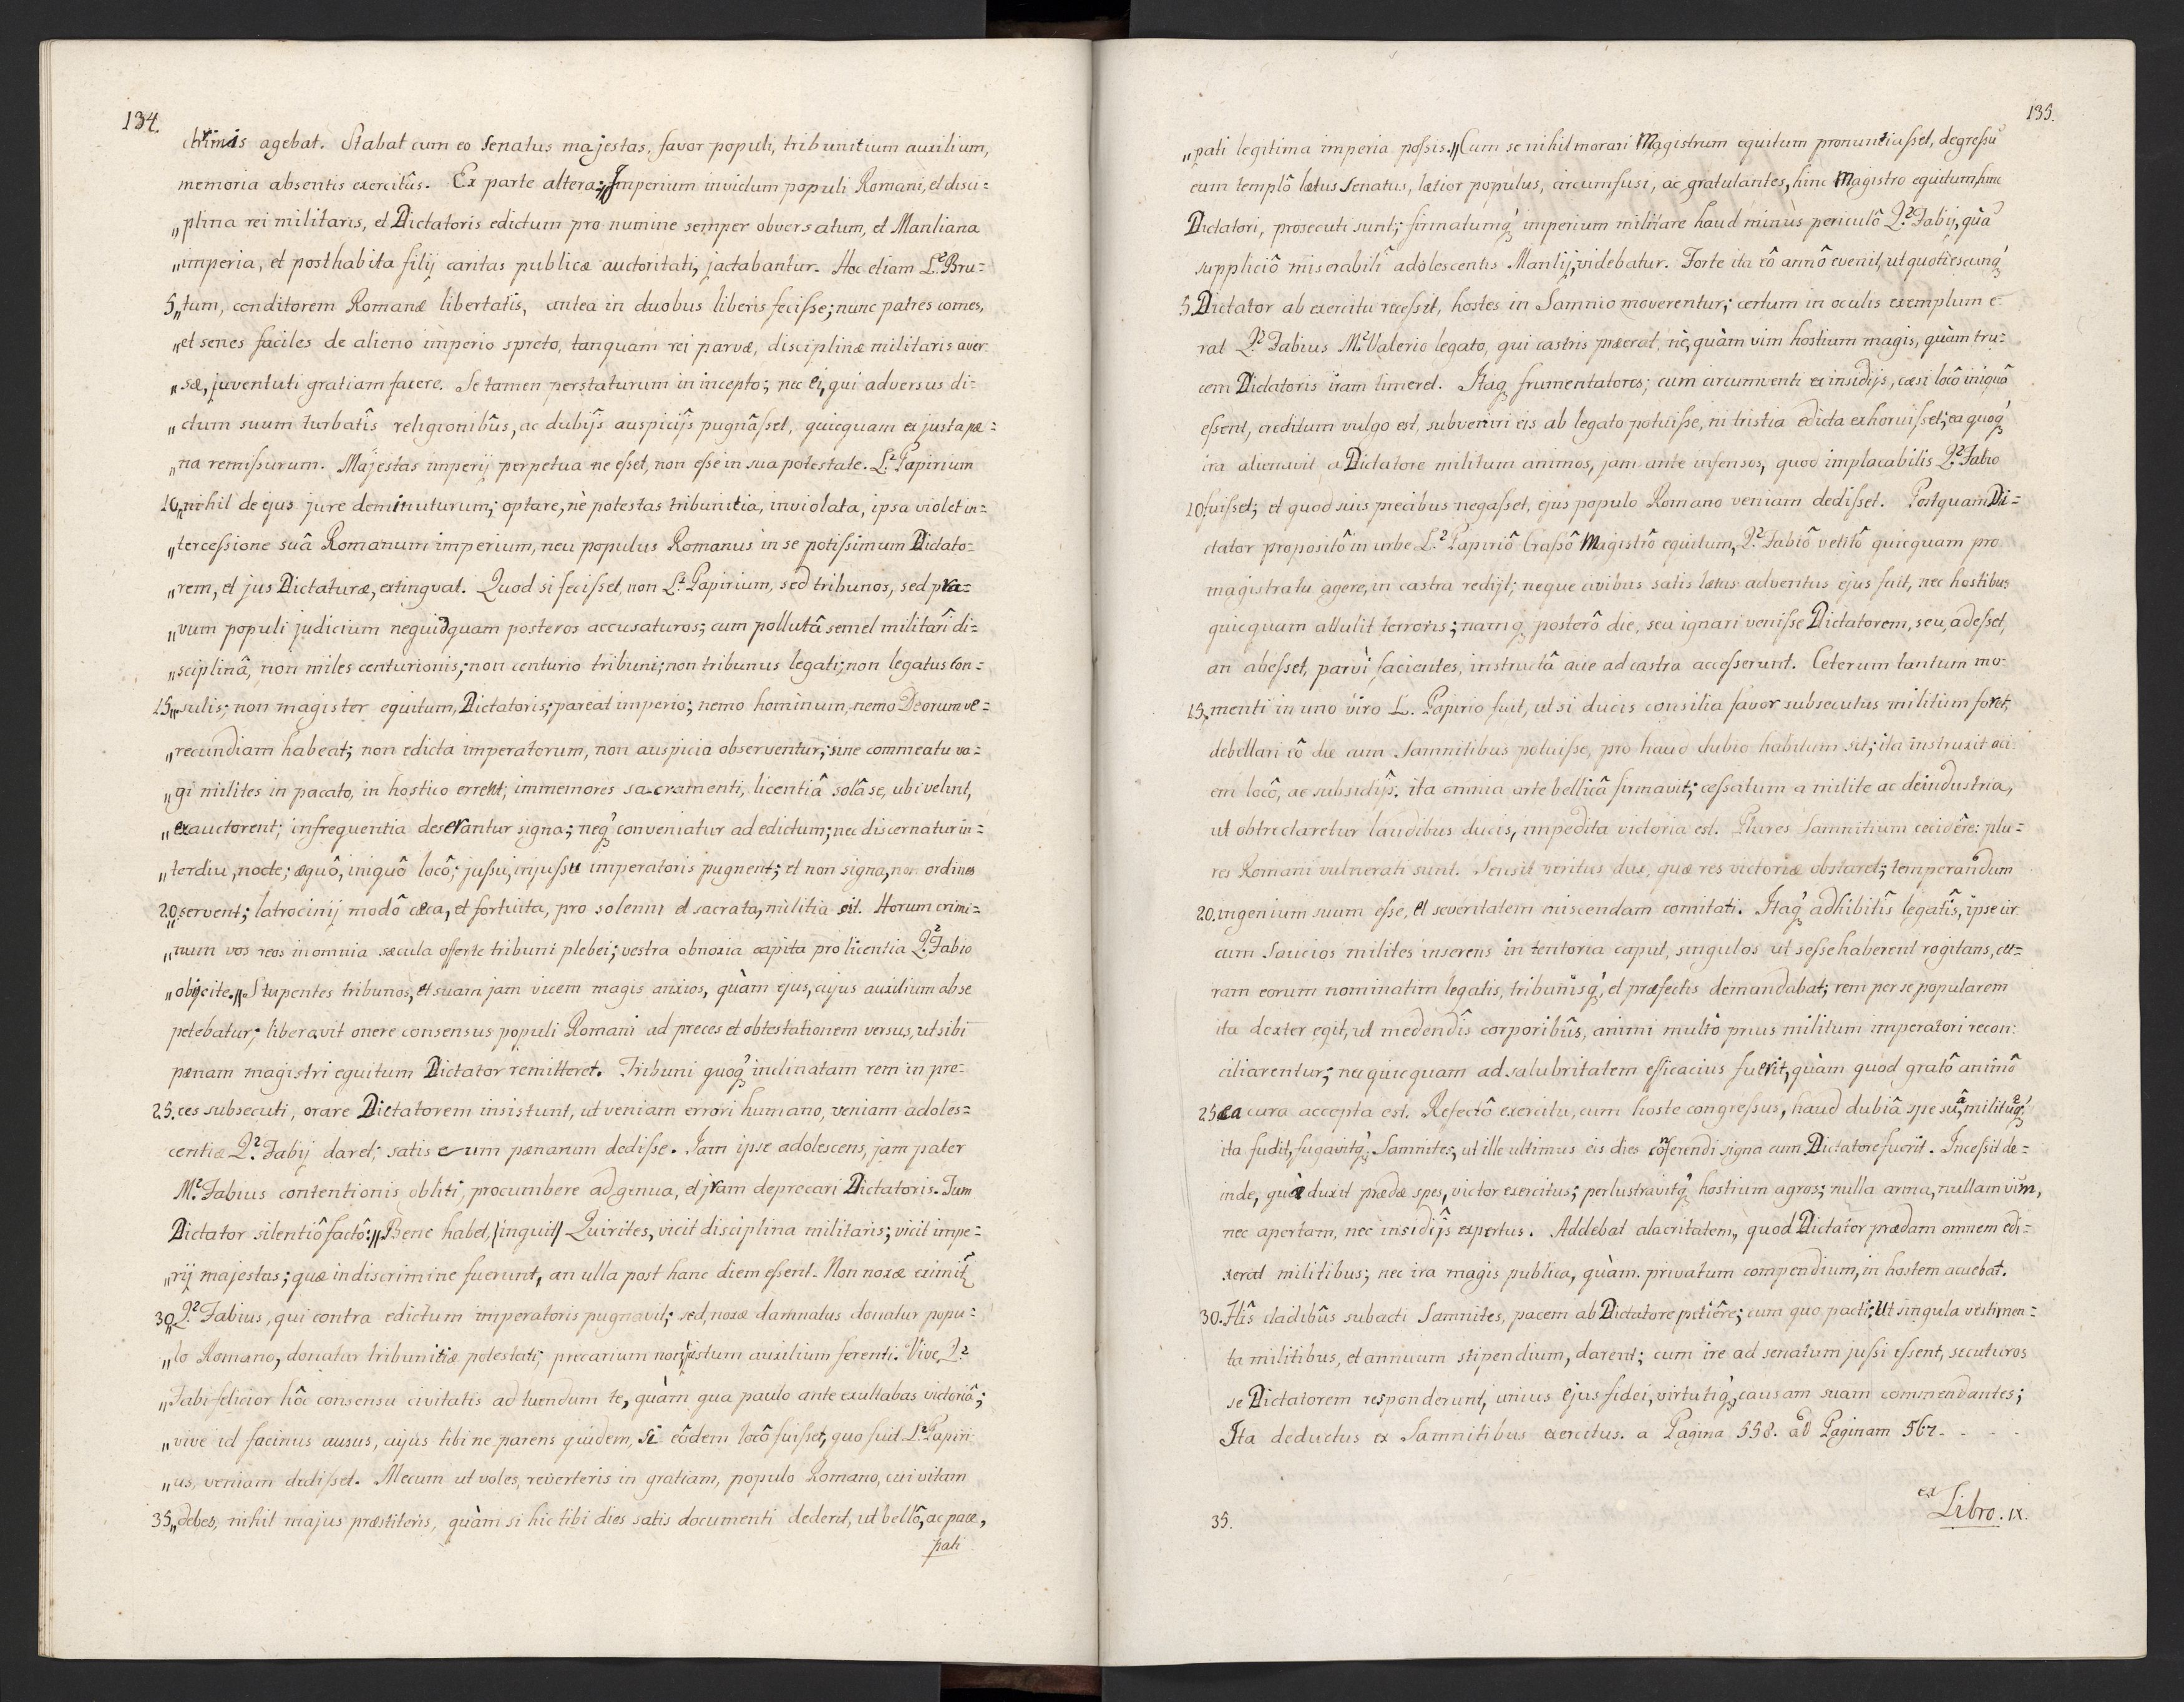 134.
chrimis agebat. Stabat cum eo Senatus majestas, favor populi, tribunitium auxilium,
memoria absentis exercitûs. Ex parte altera:„ Imperium invictum populi Romani, et disci=
„plina rei militaris, et Dictatoris edictum pro numine semper observatum, et Manliana
„imperia, et posthabita filij caritas publicæ auctoritati, jactabantur. Hoc etiam L.² Bru=
5.„tum, conditorem Romanæ libertatis, antea in duobus liberis fecisse; nunc patres comes,
„et senes faciles de alieno imperio spreto, tanquam rei parvæ, disciplinæ militaris aver=
„sæ, juventuti gratiam facere. Se tamen perstaturum in incepto; nec ei, qui adversus di=
„ctum suum turbatîs religionibûs, ac dubijs auspicijs pugnâsset, quicquam ex justa pæ=
„na remissurum. Majestas imperij perpetua ne esset, non esse in sua potestate. L.² Papirium
10„nihil de ejus jure deminuturum; optare, nè potestas tribunitia, inviolata, ipsa violet in=
„tercessione suâ Romanum imperium, neu populus Romanus in se potissimum Dictato=
„rem, et jus Dictaturæ, extinguat. Quod si fecisset, non L.² Papirium, sed tribunos, sed pra=
„vum populi judicium nequidquam posteros accusaturos; cum pollutâ semel militarî di=
„sciplinâ, non miles centurionis; non centurio tribuni; non tribunus legati; non legatus Con=
15„sulis; non magister equitum, Dictatoris; pareat imperio; nemo hominum, nemo Deorum ve=
„recundiam habeat; non edicta imperatorum, non auspicia observentur; sine commeatu va=
„gi milites in pacato, in hostico errent; immemores sacramenti, licentiâ solâ se, ubi velint,
„exauctorent; infrequentia deserantur signa; neq́ conveniatur ad edictum; nec discernatur in=
„terdiu, nocte; æquô, iniquô locô; jussu, injussu imperatoris pugnent; et non signa, non ordines
20„servent; latrocinij modô cæca, et fortuita, pro solenni et sacrata, militia sit. Horum crimi=
„num vos reos in omnia sæcula offerte tribuni plebei; vestra obnoxia capita pro licentia Q.² Fabio
„objicite.„ Stupentes tribunos, et suam jam vicem magis anxios, quàm ejus, cujus auxilium ab se
petebatur; liberavit onere consensus populi Romani ad preces et obtestationem versus, ut sibi
pænam magistri equitum Dictator remitteret. Tribuni quoq́ inclinatam rem in pre=
25. ces subsecuti, orare Dictatorem insistunt, ut veniam errori humano, veniam adoles=
centiæ Q.² Fabij daret; satis eum pænarum dedisse. Jam ipse adolescens, jam pater
M.² Fabius contentionis obliti, procumbere ad genua, et jram deprecari Dictatoris. Tum
Dictator silentiô factô:„ Bene habet, (inquit) Quirites, vicit disciplina militaris; vicit impe=
„rij majestas; quæ in discrimine fuerunt, an ulla post hanc diem essent. Non noxæ eximit̃
30„Q.² Fabius, qui contra edictum imperatoris pugnavit; sed, noxæ damnatus donatur popu=
„lo Romano, donatur tribunitiæ potestati; precarium non justum auxilium ferenti. Vive, Q.²
„Fabi felicior hôc consensu civitatis ad tuendum te, quàm qua paulo ante exultabas victoriâ;
„vive id facinus ausus, cujus tibi ne parens quidem, si eôdem locô fuisset, quo fuit L.² Papiri=
„us, veniam dedisset. Mecum ut voles, reverteris in gratiam, populo Romano, cui vitam
35„debes, nihil majus præstiteris, quàm si hic tibi dies satis documenti dederit, ut bellô, ac pace,
pati
135.
„pati legitima imperia possis.„ Cum se nihil morari Magistrum equitum pronuntiasset, degressū
eum templô lætus Senatus, lætior populus, circumfusi, ac gratulantes, hinc Magistro equitum, hinc
Dictatori, prosecuti sunt; firmatumq́ imperium militare haud minùs periculô Q.² Fabij, quā
suppliciô miserabilî adolescentis Manlij, videbatur. Forte ita eô annô evenit, ut quotiescunq́
5 Dictator ab exercitu recessit, hostes in Samnio moverentur; certum in oculis exemplum e=
rat Q.² Fabius M.² Valerio legato, qui castris præerat, nè, quàm vim hostium magis, quàm tru=
cem Dictatoris iram timeret. Itaq frumentatores; cum circumventi ex insidijs, cæsi locô iniquô
essent, creditum vulgo est, subveniri eis ab legato potuisse, ni tristia edicta exhoruisset; ea quoq́
ira alienavit a Dictatore militum animos, jam ante infensos, quod implacabilis Q.² Fabio
10 fuisset; et quod suis precibus negasset, ejus populo Romano veniam dedisset. Postquam Di=
ctator propositô in urbe L.² Papiriô Crassô Magistrô equitum, Q.² Fabiô vetitô quicquam pro
magistratu agere, in castra redijt; neque civibus satis lætus adventus ejus fuit, nec hostibus
quicquam attulit terroris; namq posterô die, seu ignari venisse Dictatorem, seu, adesset,
an abesset, parvi facientes, instructâ acie ad castra accesserunt. Ceterum tantum mo=
15. menti in uno viro L. Papirio fuit, ut si ducis consilia favor subsecutus militum foret,
debellari eô die cum Samnitibus potuisse, pro haud dubio habitum sit; ita instruxit aci=
em locô, ac subsidijs, ita omnia arte bellicâ firmavit; cessatum a milite ac deindustria,
ut obtrectaretur laudibus ducis, impedita victoria est. Plures Samnitium cecidêre: plu=
res Romani vulnerati sunt. Sensit peritus dux, quæ res victoriæ obstaret; temperandum
20. ingenium suum esse, et severitatem miscendam comitati. Itaq́ adhibitîs legatîs, ipse cir=
cum saucios milites inserens in tentoria caput, singulos ut sesse haberent rogitans, cu=
ram eorum nominatim legatis, tribunisq́, et præfectis demandabat; rem per se popularem
ita dexter egit, ut medendîs corporibûs, animi multô prius militum imperatori recon=
ciliarentur; nec quicquam ad salubritatem efficacius fuerit, quàm quod gratô animô
25 ea cura accepta est. Refectô exercitu, cum hoste congressus, haud dubiâ spe suâ, militūq́;
ita fudit, fugavitq́ Samnites, ut ille ultimus eis dies conferendi signa cum Dictatore fuerit. Incessit de=
inde, quà duxit prædæ spes, victor exercitus; perlustravitq́ hostium agros; nulla arma, nullam vim,
nec apertam, nec insidijs expertus. Addebat alacritatem, quod Dictator prædam omnem edi=
xerat militibus; nec ira magis publica, quàm privatum compendium, in hostem acuebat.
30. Hîs cladibûs subacti Samnites, pacem ab Dictatore petiêre; cum quo pacti; Ut singula vestimen=
ta militibus, et annuum stipendium, darent; cum ire ad senatum jussi essent, secuturos
se Dictatorem responderunt, unius ejus fidei, virtutiq́, causam suam commendantes;
Ita deductus ex Samnitibus exercitus. a Pagina 558. ad Paginam 567. - - -
ex Libro. IX.
35.